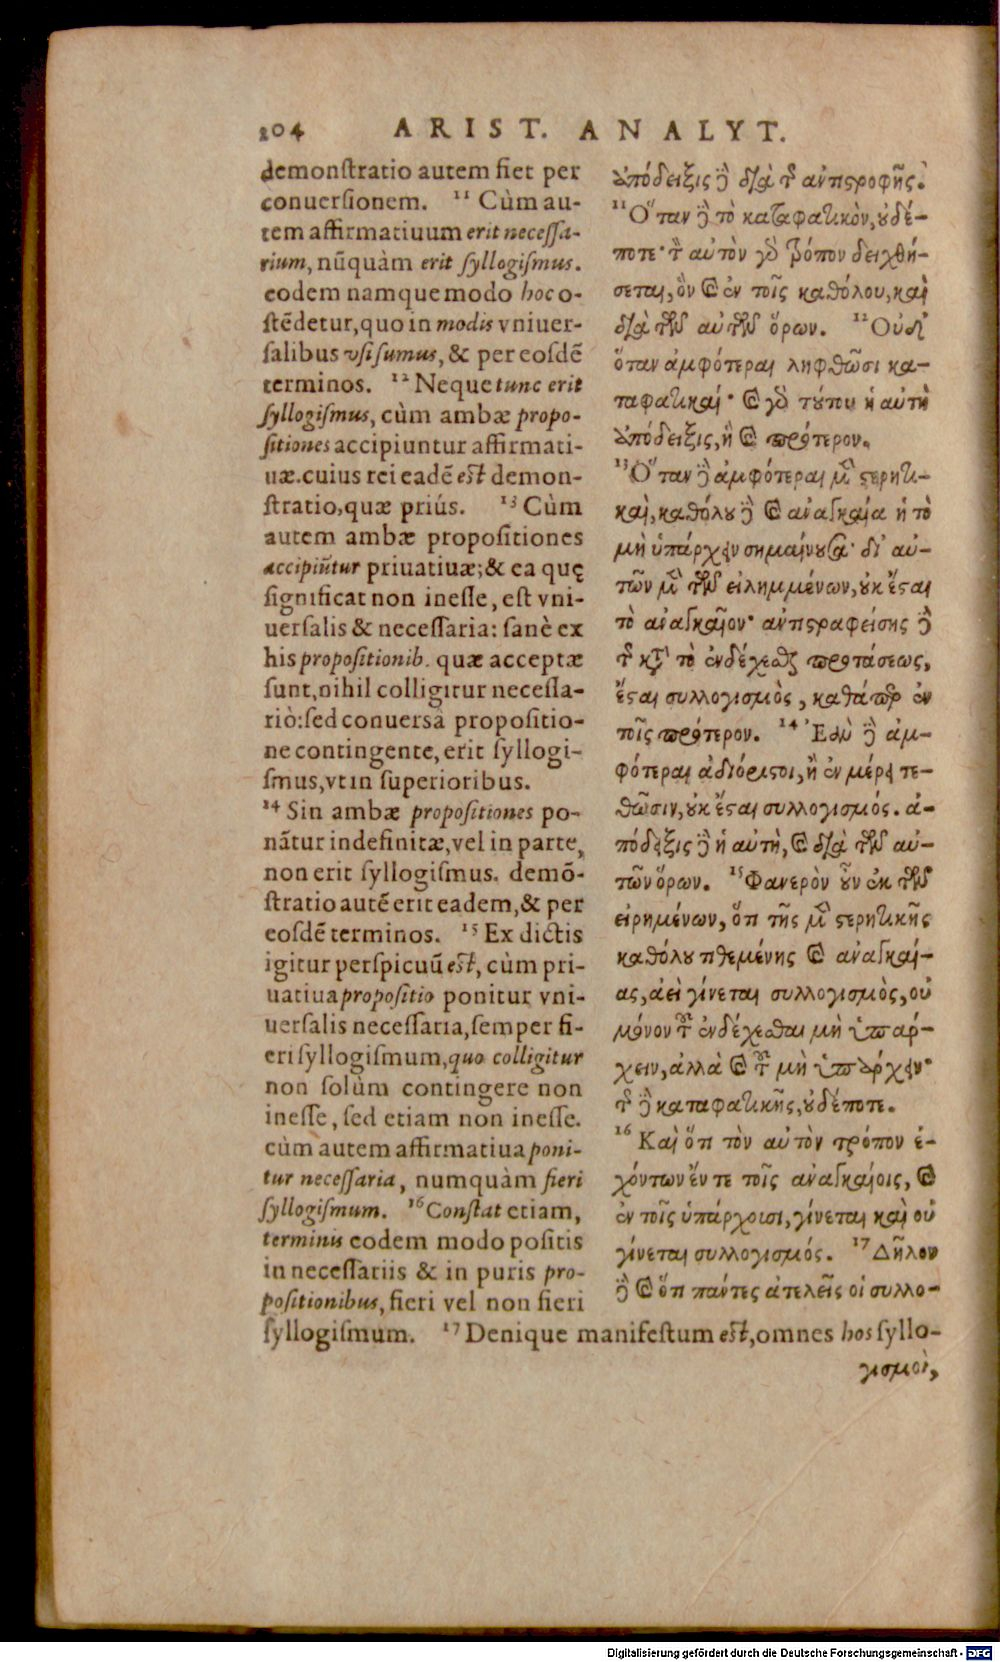 204 ARIST. ANALYT.
demonſtratio autem fiet per
conuerſionem. 11 Cùm au-
tem affirmatiuum erit neceſſa-
rium, nūquàm erit ſyllogiſmus.
eodem namque modo hoc o-
ſtēdetur, quo in modis vniuer-
ſalibus vſi ſumus, & per eoſdē
terminos. 12 Neque tunc erit
ſyllogiſmus, cùm ambæ propo-
ſitiones accipiuntur affirmati-
uæ. cuius rei eadē est demon-
ſtratio, quæ priús. 13 Cùm
autem ambæ propoſitiones
accipiūtur priuatiuæ; & ea quę
ſignificat non ineſſe, eſt vni-
uerſalis & neceſſaria: ſanè ex
his propoſitionib. quæ acceptæ
ſunt, nihil colligitur neceſſa-
riò: ſed conuersâ propoſitio-
ne contingente, erit ſyllogi-
ſmus, vt in ſuperioribus.
14 Sin ambæ propoſitiones po-
nãtur indefinitæ, vel in parte,
non erit ſyllogiſmus. demō-
ſtratio autē erit eadem, & per
eoſdē terminos. 15 Ex dictis
igitur perſpicuū est, cùm pri-
uatiua propoſitio ponitur vni-
uerſalis neceſſaria, ſemper fi-
eri ſyllogiſmum, quo colligitur
non ſolùm contingere non
ineſſe, ſed etiam non ineſſe.
cùm autem affirmatiua poni-
tur neceſſaria, numquàm fieri
ſyllogiſmum. 16 Conſtat etiam,
terminis eodem modo poſitis
in neceſſariis & in puris pro-
poſitionibus, fieri vel non fieri
ſyllogiſmum. 17 Denique manifeſtum est, omnes hos ſyllo-
ἀπόδειξις ἢ διὰ τῆς ἀντιστροφῆς.
11 Ὅταν ἢ τὸ καταφατικὸν, οὐδέ-
ποτε· τὸ αὐτὸν γὸ τρόπον δειχθή-
σεται, ὃν καὶ ἐν τοῖς καθόλου, καὶ
διὰ τῶν αὐτῶν ὅρων. 12 Οὐδ'
ὅταν ἀμφότεραι ληφθῶσι κα-
ταφατικαί· καὶ γὸ τούτου ἡ αὐτὴ
ἀπόδειξις, ἣ καὶ πρότερον.
13 Ὅταν ἢ ἀμφότεραι μὲν στερητι-
καὶ, καθόλου ἢ καὶ ἀναγκαία ἡ τὸ
μὴ ὑπάρχειν σημαίνουσα· δι' αὐ-
τῶν μὲν τῶν εἰλημμένων, οὐκ ἔσται
τὸ ἀναγκαῖον· ἀντιστραφείσης ἢ
τῆς κατὰ τὸ ἐνδέχεσθαι προτάσεως,
ἔσται συλλογισμὸς, καθάπερ ἐν
τοῖς πρότερον. 14 Ἐὰν ἢ ἀμ-
φότεραι ἀδιόριστοι, ἢ ἐν μέρει τε-
θῶσιν, οὐκ ἔσται συλλογισμός. ἀ-
πόδειξις ἢ ἡ αὐτὴ, καὶ διὰ τῶν αὐ-
τῶν ὅρων. 15 Φανερὸν οὖν ἐκ τῶν
εἰρημένων, ὅτι τῆς μὲν στερητικῆς
καθόλου τιθεμένης καὶ ἀναγκαί-
ας, ἀεὶ γίνεται συλλογισμὸς, οὐ
μόνον τοῦ ἐνδέχεσθαι μὴ ὑπάρ-
χειν, ἀλλὰ καὶ τοῦ μὴ ὑπάρχειν·
τῆς ἢ καταφατικῆς, οὐδέποτε.
16 Καὶ ὅτι τὸν αὐτὸν τρόπον ἐ-
χόντων ἔν τε τοῖς ἀναγκαίοις, καὶ
ἐν τοῖς ὑπάρχουσι, γίνεται καὶ οὐ
γίνεται συλλογισμός. 17 Δῆλον
ἢ καὶ ὅτι πάντες ἀτελεῖς οἱ συλλο-
γισμοὶ,
Digitalisierung gefördert durch die Deutsche Forschungsgemeinschaft - DFG